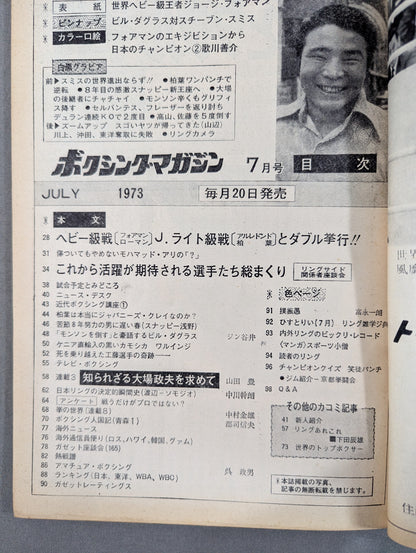 表 紙 世界ヘビー級王者ジョージ・フォアマン
ピンナップ ビル・ダグラス対スチーブン・スミス
カラー口絵 フォアマンのエキジビションから
日本のチャンピオン②歌川善介
白黒グラビア
前▶スミスの世界進出ならず!! ●柏葉ワンパンチで
逆転 ●8年目の感激スナッピー新王座へ ●大場
の後継者にチャチャイ ●モンソン辛くもグリフィ
ス降す ●セルバンテス、フレーザーを返り討ち
デュラン連続KOで2度目 ●高山、佐藤を5度倒す
後▶ズームアップ スゴいヤツが帰ってきた(山辺)
川上、沖田、東洋奪取に失敗 ●リングカメラ
ボクシング・マガジン 7月号 目 次
JULY 1973 毎月20日発売
本 文
28 ヘビー級戦〔フォアマン ローマン〕J.ライト級戦〔アルレドンド 柏葉〕とダブル挙行!!
31 傷ついてもやめないモハマッド・アリの「?」
34 これから活躍が期待される選手たち総まくり リングサイド関係者座談会
38 試合予定とみどころ
40 ニュース・デスク
43 近代ボクシング講座①
44 柏葉は本当にジャパニーズ・クレイなのか?
46 苦節8年努力の男に遅い春(スナッピー浅野)
48 「モンソンを倒す」と豪語するビル・ダグラス ジン谷井
50 ケニア直輸入の黒いカモシカ ワルインジ
52 死を乗り越えた工藤選手の奇跡——
55 テレビ・ボクシング
58 連載3 知られざる大場政夫を求めて 山田 豊
62 日本リングの決定的瞬間史(渡辺―ソモジオ) 中川幹朗
64 アンケート 戦うだけがプロではない?
68 拳の世界(連載8) 中村金雄
70 ボクシング人国記(青森1) 郡司信夫
77 海外ニュース
76 海外通信員便り(ロス、ハワイ、韓国、グァム)
78 ガゼット座談会(165)
82 熱戦譜
86 アマチュア・ボクシング 呉 政男
88 ランキング(日本、東洋、WBA、WBC)
90 ガゼットレーティングス
色ページ
91 撲振愚 富永一朗
92 ひすとりい(7月) リング雑学辞典
93 内外リングのビックリ・レコード
(マンガ)スポーツ小僧
94 読者のリング
96 チャンピオンクイズ 笑徒パンチ
●ジム紹介―京都拳闘会
98 Q&A
その他のカコミ記事
41 新人紹介
57 リングあれこれ
■下田辰雄
73 世界のトップボクサー
■本誌掲載の写真、
記事の無断転載を禁じます。